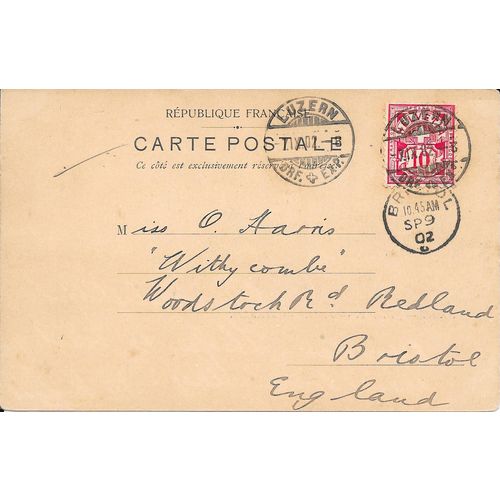 RÉPUBLIQUE FRANÇAISE
CARTE POSTALE
Ce côté est exclusivement réservé
LUZERN
BRF. EXP.
LUZERN
10
BRF. EXP.
BRISTOL
10.45AM
SP 9
02
Miss O. Harris
"Withycombe"
Woodstock Rd Redland
Bristol
England